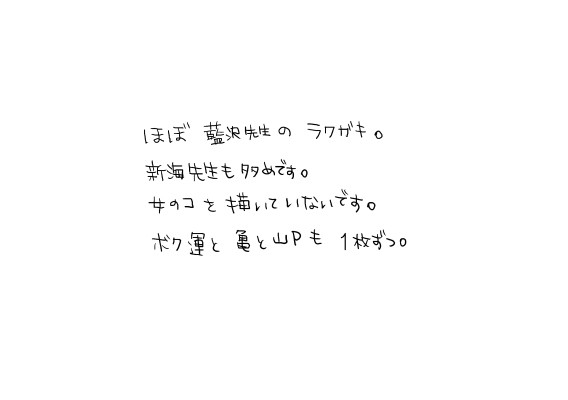 ほぼ 藍沢先生の ラクガキ。
新海先生も多めです。
女のコを描いていないです。
ボク運と亀と山Pも 1枚ずつ。